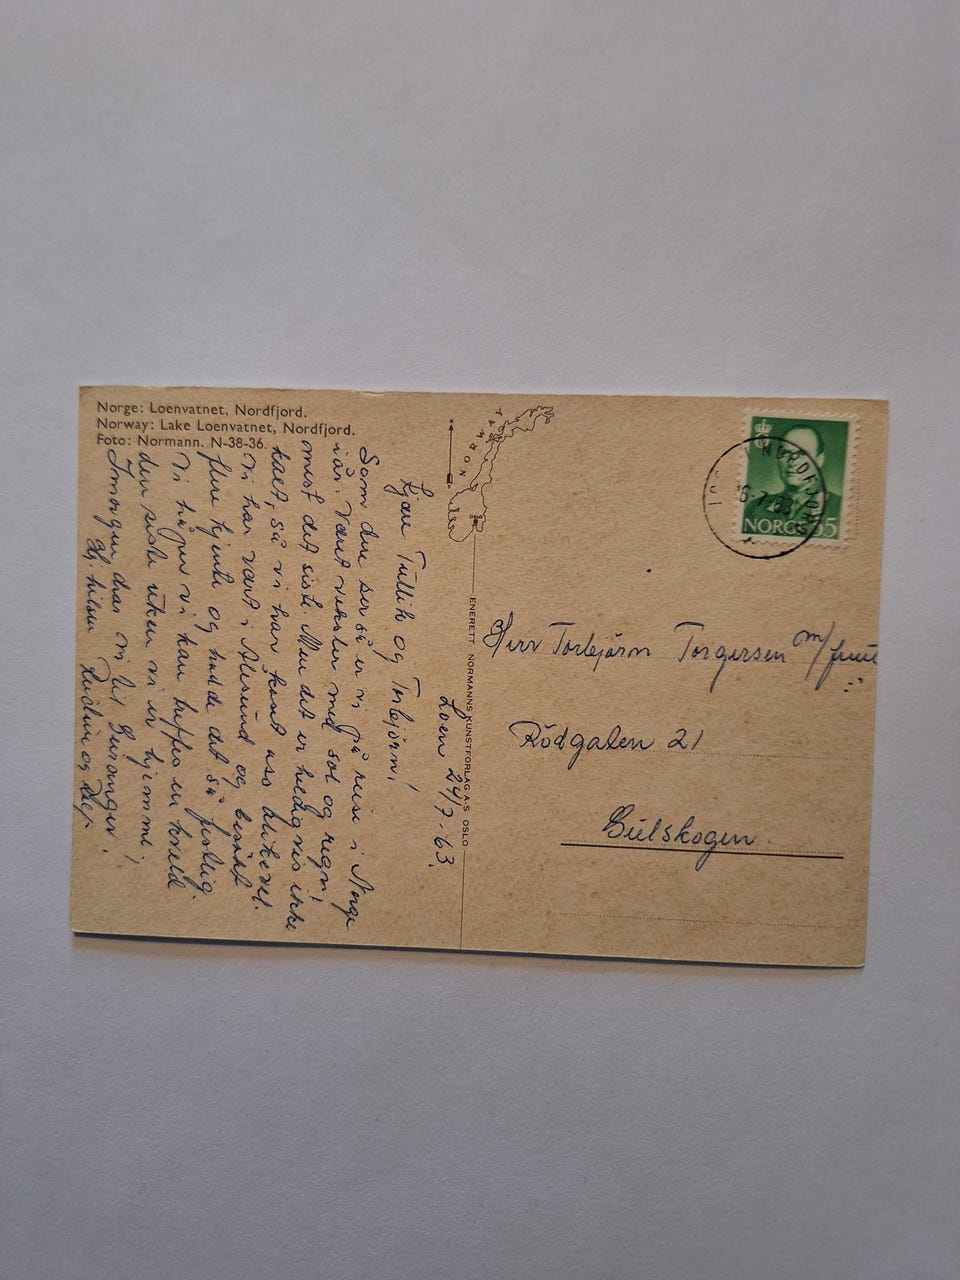 Norge: Loenvatnet, Nordfjord.
Norway: Lake Loenvatnet, Nordfjord.
Foto: Normann. N-38-36.
NORWAY
Loen 24/7-63.
Kjære Tullik og Torbjörn!
Som dere ser så er vi på reise i Norge
i år. Været veksler med sol og regn,
mest det siste. Men det er heldigvis ikke
kaldt, så vi har kost oss likevel.
Vi har vært i Ålesund og besökt
flere kjente og hadde det så festlig.
Vi håper vi kan treffes en kveld
den siste uken vi er hjemme,
Imorgen drar vi til Geiranger.
Hj. hilsen
ENERETT: NORMANNS KUNSTFORLAG A.S OSLO
NORDFJORD
6.7.63
NORGE 35
Herr Torbjörn Torgersen m/frue
Rödgaten 21
Gulskogen